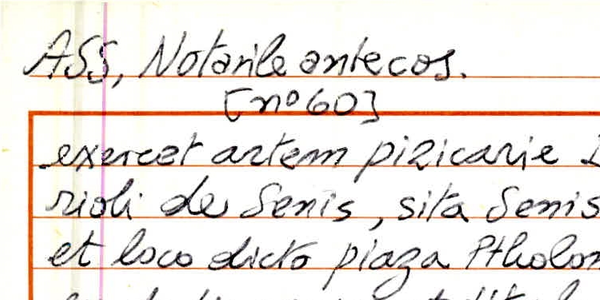 ASS, Notarile antecos.
[nº 60]
exercet artem pizicarie
rioli de Senis, sita Senis
et loco dicto piaza Ptholom